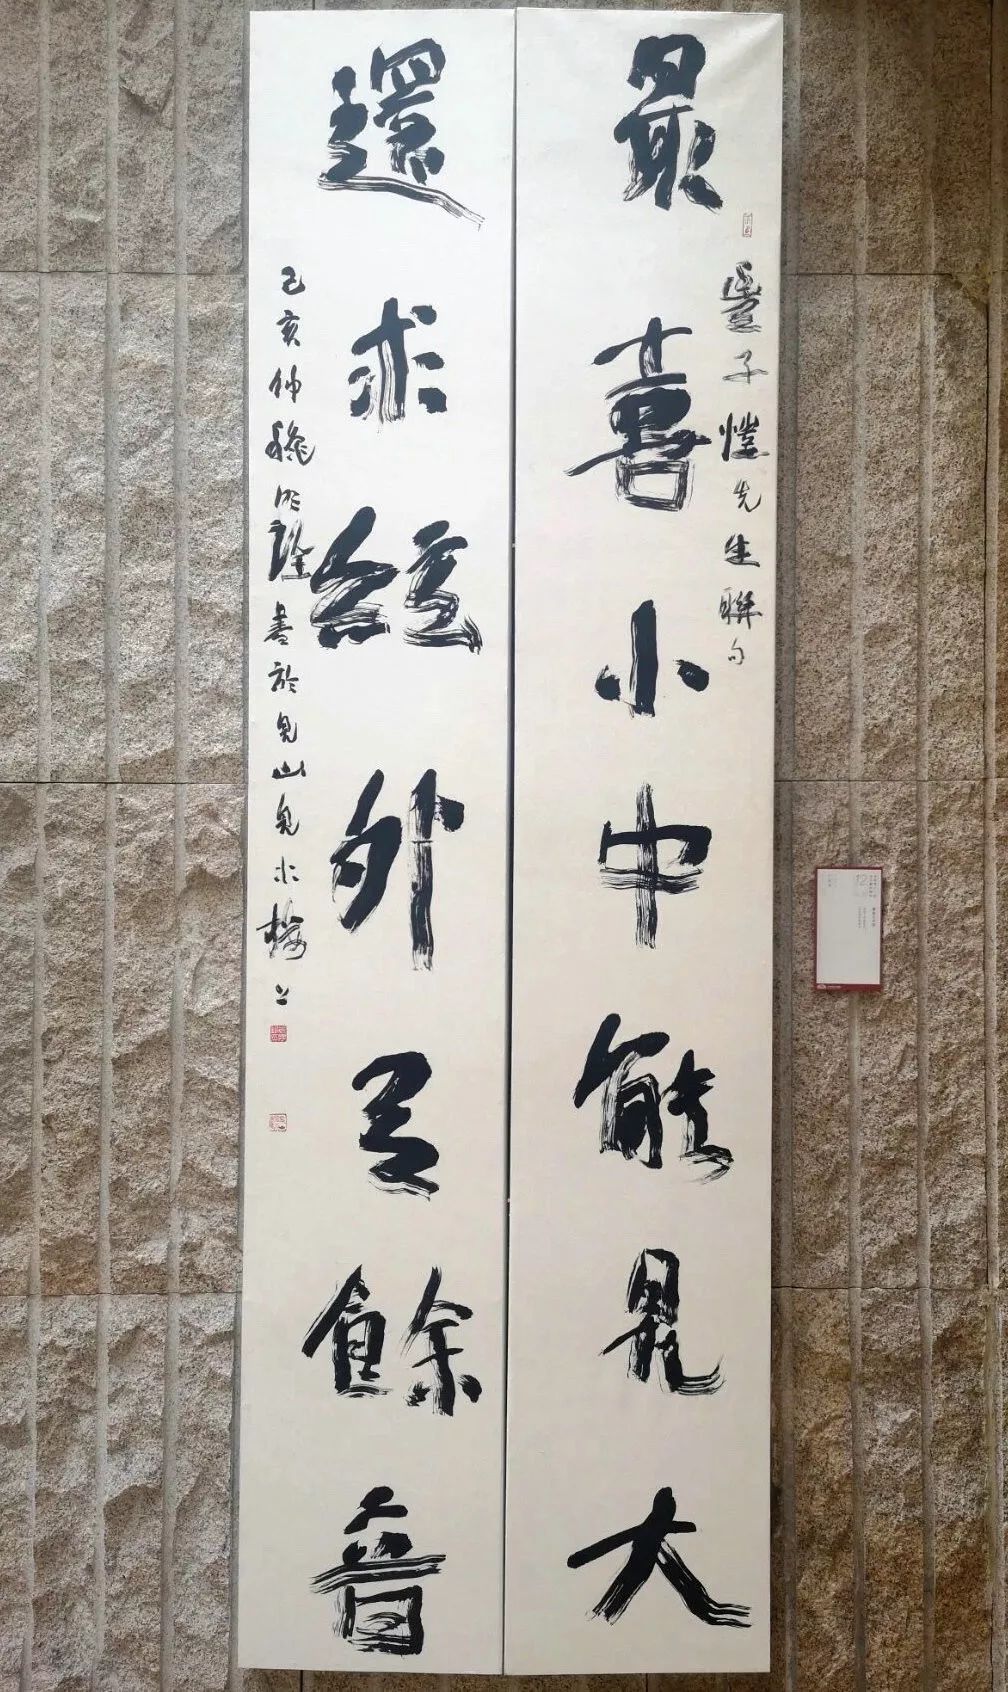 最喜小中能見大
豐子愷先生聯句
還求絃外有餘音
己亥仲龝明詮書於見山見水樓上